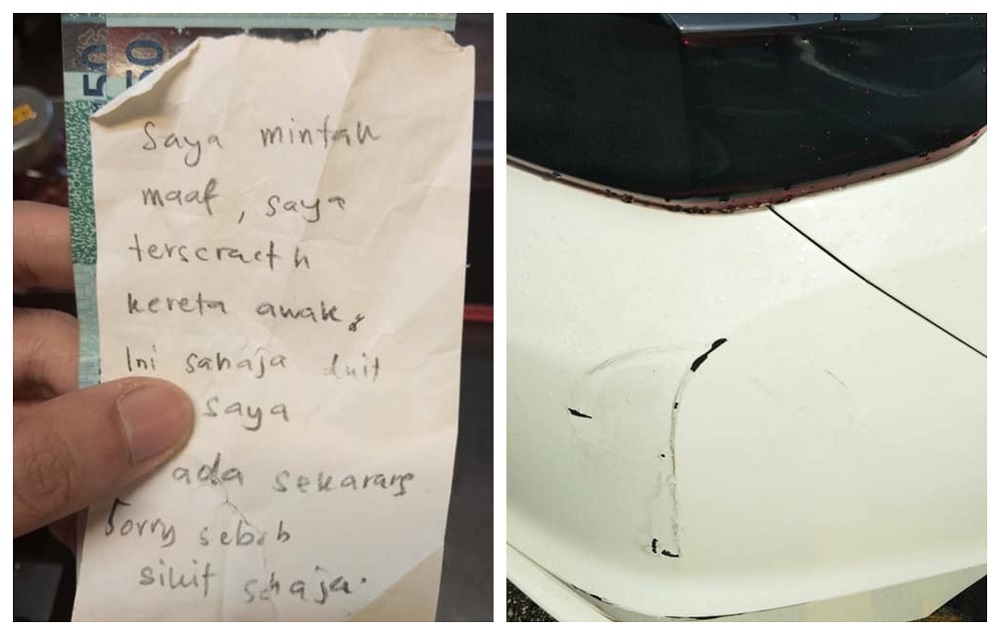 50 50
Saya mintak
maaf, saya
terscracth
kereta awak.
Ini sahaja duit
saya
ada sekarang
Sorry sebab
sikit sahaja.